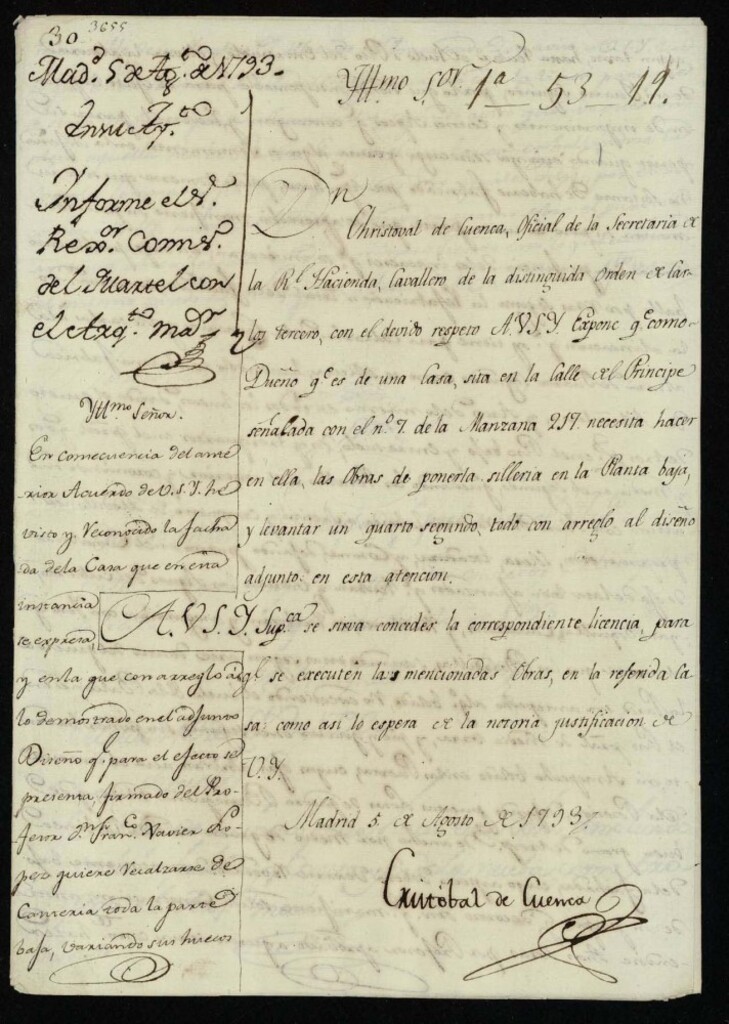 30 3655
Mad.d 5 de Ag.to de 1793.
En su Ay.to
Informe el S.r
Rex.or Comis.o
del Quartel con
el Arq.to may.r
Yltmo Señor.
En consecuencia del ante
rior Acuerdo de V.S.Y. he
visto y reconocido la facha
da de la Casa que en esta
instancia
se expresa,
y en la que con arreglo a
lo demostrado en el adjunto
Diseño q.e para el efecto se
presenta, firmado del Pro-
fesor D.n Fran.co Xavier Lo-
pez quiere recalzarse de
Canteria toda la parte
baja, variando sus huecos
Yltmo Sor. 1a 53 11.
Dn
Christoval de Cuenca, Oficial de la Secretaria de
la Rl. Hacienda, Cavallero de la distinguida Orden de Car-
los tercero, con el devido respeto A.V.S.Y. Expone q.e como
Dueño q.e es de una Casa, sita en la Calle del Principe
señalada con el n.o 7. de la Manzana 217. necesita hacer
en ella, las Obras de ponerla silleria en la Planta baja,
y levantar un quarto segundo, todo con arreglo al diseño
adjunto: en esta atencion.
A.V.S.Y. Sup.ca se sirva conceder la correspondiente licencia, para
q.e se executen las mencionadas Obras, en la referida Ca-
sa: como asi lo espera de la notoria justificacion de
V.Y.
Madrid 5 de Agosto de 1793.
Cristobal de Cuenca